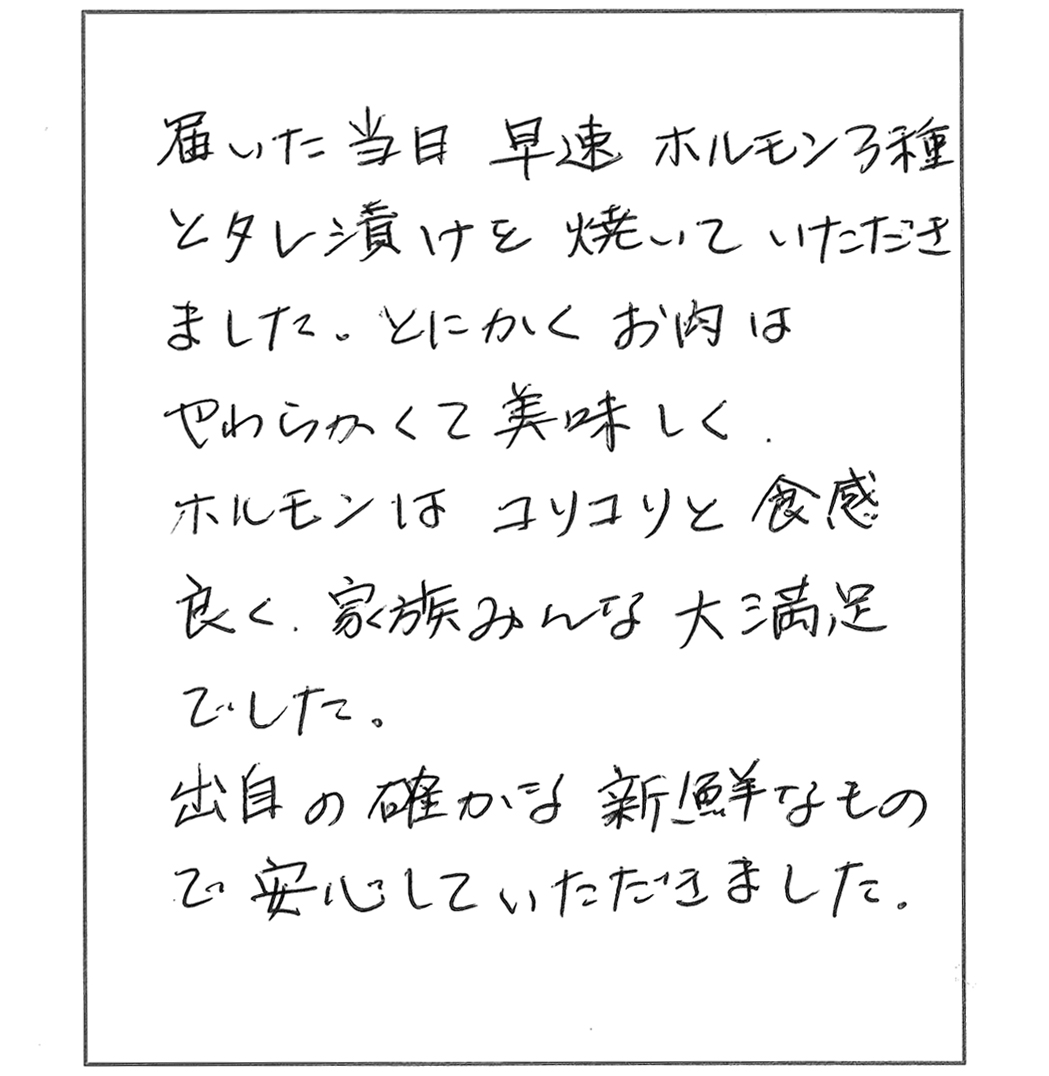 届いた当日 早速 ホルモン3種
とタレ漬けを 焼いて いただき
ました。とにかく お肉は
やわらかくて 美味しく、
ホルモンは コリコリと 食感
良く、家族みんな 大満足
でした。
出自の確かな 新鮮なもの
で 安心していただきました。